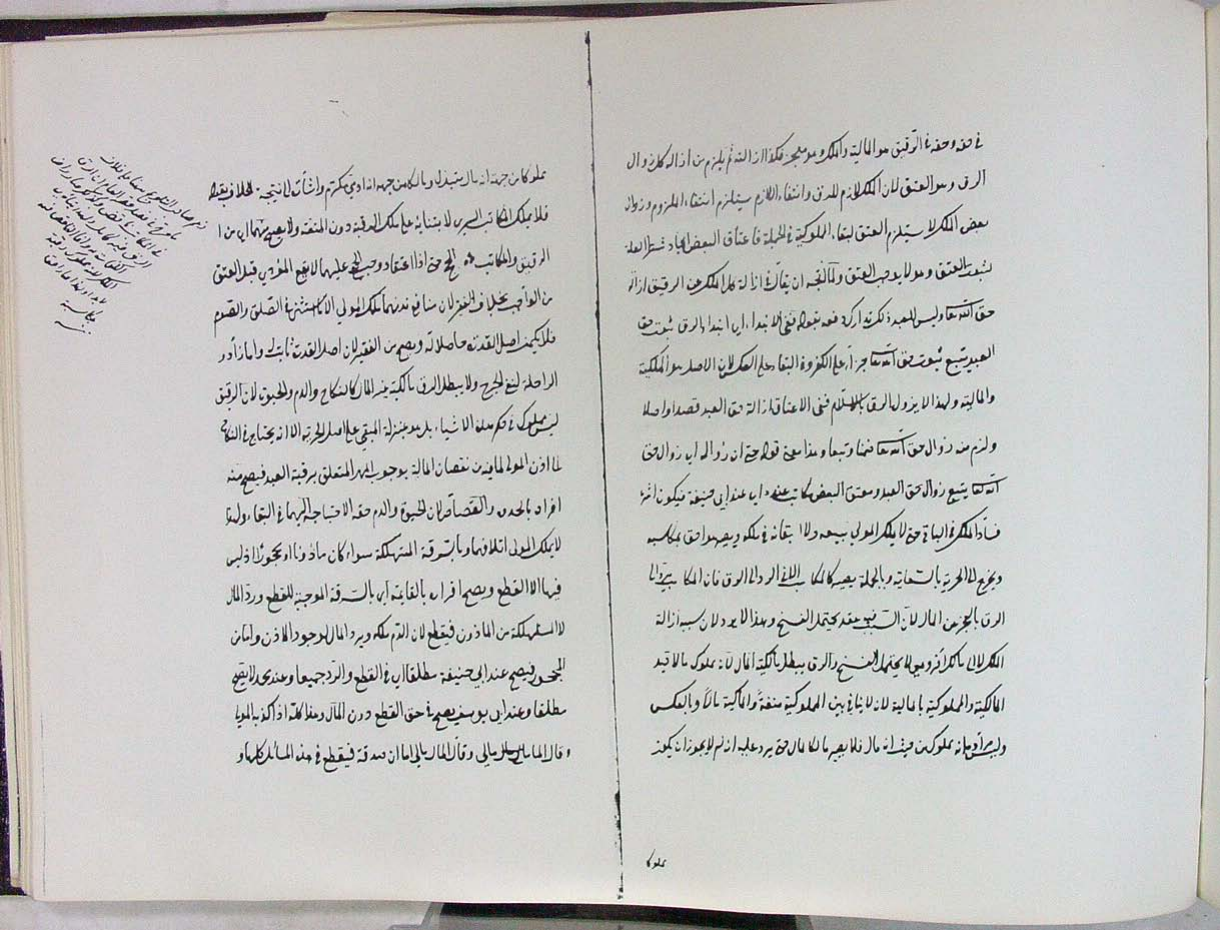 في حقه وحقه في الرقيق هو المالية والملك وهو متجز فكذا ازالته ثم يلزم من ازالة كله زوال
الرق وهو العتق لان الملك لازم للرق وانتفاء اللازم يستلزم انتفاء الملزوم وزوال
بعض الملك لا يستلزم العتق لبقاء المملوكية في الجملة فاعتاق البعض ايجاد شطر العلة
لثبوت العتق وهو لا يوجب العتق ولما اتجه ان يقال في ازالة كل الملك عن الرقيق ازالة
حق الله تعالى وليس للعبد ذلك دفعه بقوله ففي الابتداء اي ابتداء الرق ثبوت حق
العبد يتبع ثبوت حق الله تعالى جزاء على الكفر وفي البقاء على العكس لان الاصل هو الملكية
والمالية ولهذا لا يزول الرق بالاسلام ففي الاعتاق ازالة حق العبد قصدا واصلا
ولزم منه زوال حق الله تعالى ضمنا وتبعا وهذا معنى قوله حتى ان زواله اي زوال حق
الله تعالى يتبع زوال حق العبد ومعتق البعض كاتب عنده اي عند ابي حنيفة فيكون اثره
فساد الملك في الباقي حتى لا يملك المولى بيعه ولا ابقائه في ملكه ويصير هو احق بمكاسبه
ويخرج الى الحرية بالسعاية وبالجملة يصير كالمكاتب الا في الرد الى الرق فان المكاتب يرد الى
الرق بالعجز عن المال لان السبب فيه عقد يحتمل الفسخ وهذا لا يرد لان سببه ازالة
الملك لا الى مالك آخر وهي لا يحتمل الفسخ والرق يبطل مالكية المال لانه مملوك مالا فبين
المالكية والمملوكية بالمالية لانه لا ينافي بين المملوكية متعة والمالكية مالا وبالعكس
وليس مراده بانه مملوك من حيث انه مال فلا يصير مالكا لمال حتى يرد عليه انه لم لا يجوز ان يكون
مملوكا
مملوكا من جهة انه مال مبتذل ومالكا من جهة انه ادمي مكرم واشار الى نتيجة الخلاف بقوله
فلا يملك المكاتب التسري لابتنائه على ملك الرقبة دون المتعة ولا يصح منهما اي من
الرقيق والمكاتب الحج حتى اذا اعتقا ووجب الحج عليهما لا يقع المؤدى قبل العتق
من الواجب بخلاف الفقير لان منافع بدنهما ملك المولى الا ما استثنى في الصلاة والصوم
فلا يكون اصل القدرة حاصلا له ويصح من الفقير لان اصل القدرة ثابت له وانما الزاد و
الراحلة لنفي الحرج ولا يبطل الرق مالكية غير المال كالنكاح والدم والحيوة لان الرقيق
ليس مملوك في حكم هذه الاشياء بل هو بمنزلة المبقى على اصل الحرية الا انه يحتاج في النكاح
الى اذن المولى لما فيه من نقصان المالية بوجوب المهر المتعلق برقبة العبد فيصح منه
اقراره بالحدود والقصاص لان الحيوة والدم حقه لاحتياجه اليهما في البقاء ولهذا
لا يملك المولى اتلافهما وبالسرقة المستهلكة سواء كان ماذونا او محجورا اذ ليس
فيها الا القطع ويصح اقراره بالقائمة اي بالسرقة الموجبة للقطع ورد المال
لا المستهلكة من الماذون فيقطع لان الدم ملكه ويرد المال لوجود الاذن واما من
المحجور فيصح عند ابي حنيفة مطلقا اي في القطع والرد جميعا وعند محمد لا يصح
مطلقا وعند ابي يوسف يصح في حق القطع دون المال وهذا كله اذا كذبه المولى
وقال المال مالي وقال المال مالي اما ان صدقه فيقطع في هذه المسائل كلها و